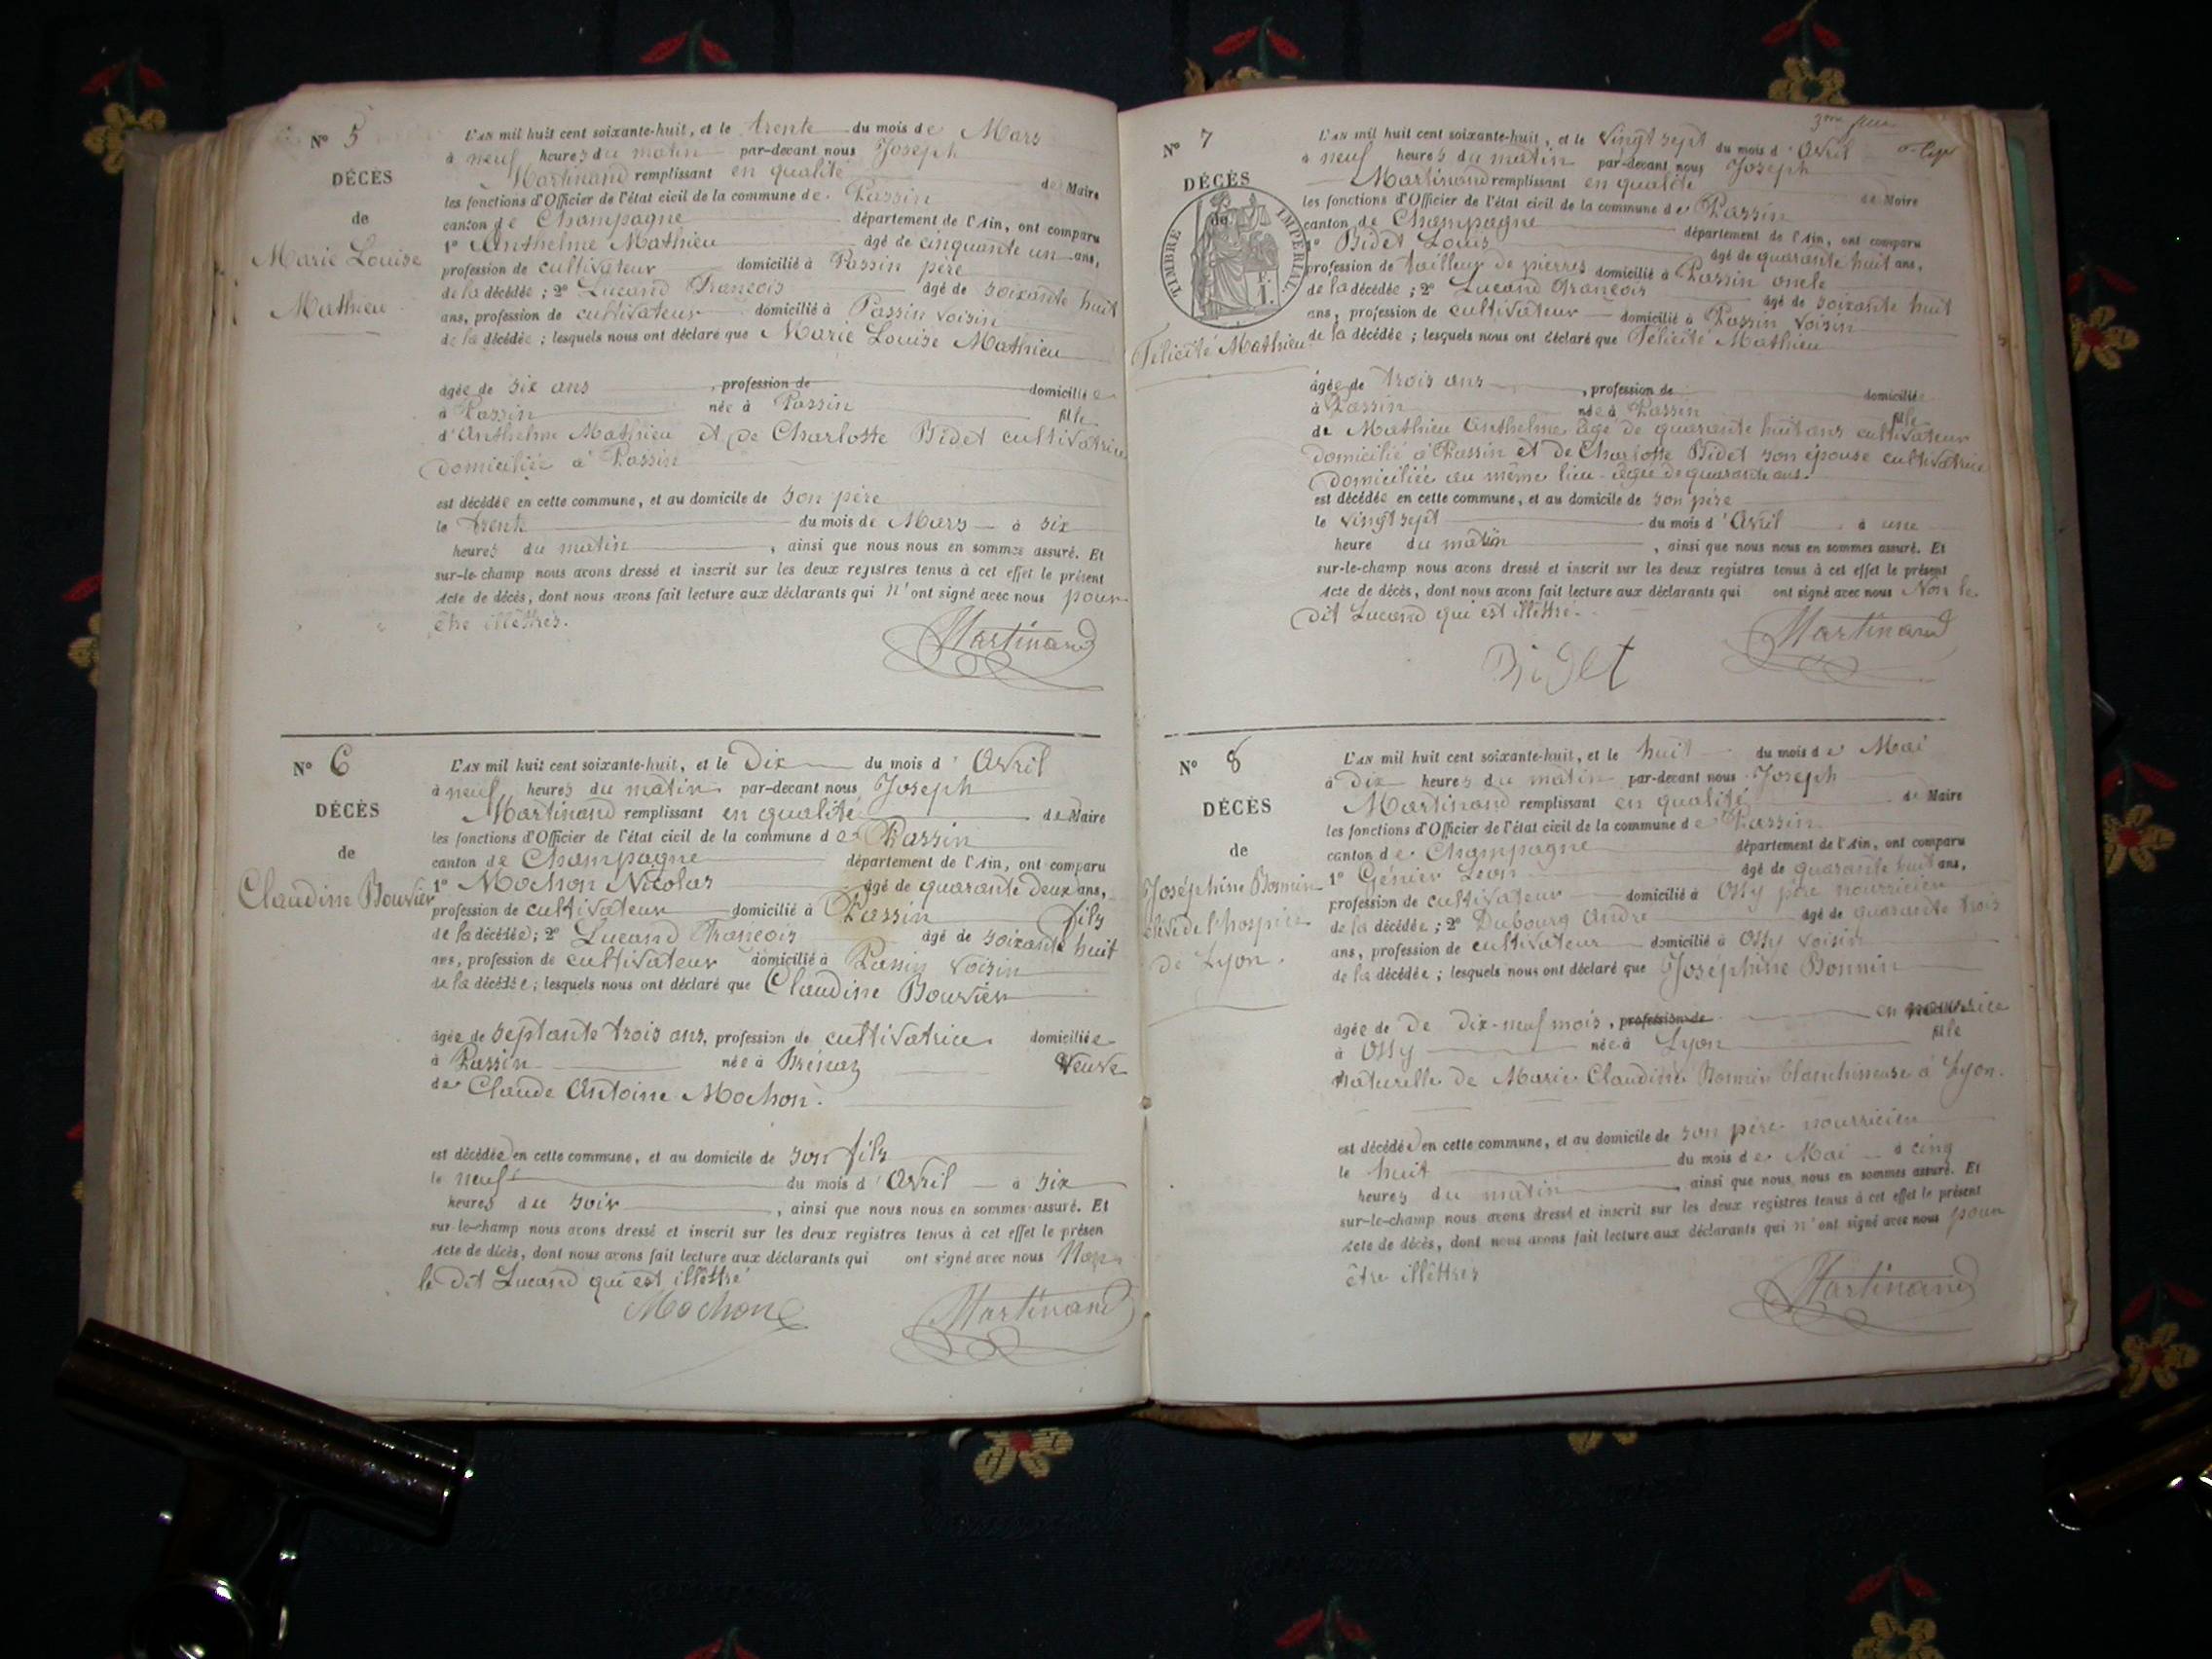 N° 5
DÉCÈS
de
Marie Louise
Mathieu
L'AN mil huit cent soixante-huit, et le trente du mois de Mars
à neuf heures du matin par-devant nous Joseph
Martinand remplissant en qualité de Maire
les fonctions d'Officier de l'état civil de la commune de Passin
canton de Champagne département de l'Ain, ont comparu
1° Anthelme Mathieu âgé de cinquante un ans,
profession de cultivateur domicilié à Passin père
de la décédée ; 2° Lucand François âgé de soixante huit
ans, profession de cultivateur domicilié à Passin voisin
de la décédée ; lesquels nous ont déclaré que Marie Louise Mathieu
âgée de six ans , profession de domiciliée
à Passin née à Passin fille
d'Anthelme Mathieu et de Charlotte Bidet cultivatrice
domiciliée à Passin
est décédée en cette commune, et au domicile de son père
le trente du mois de Mars à six
heures du matin , ainsi que nous nous en sommes assuré. Et
sur-le-champ nous avons dressé et inscrit sur les deux registres tenus à cet effet le présent
Acte de décès, dont nous avons fait lecture aux déclarants qui n'ont signé avec nous pour
être illettrés.
Martinand
N° 6
DÉCÈS
de
Claudine Bouvier
L'AN mil huit cent soixante-huit, et le Dix du mois d'Avril
à neuf heures du matin par-devant nous Joseph
Martinand remplissant en qualité de Maire
les fonctions d'Officier de l'état civil de la commune de Passin
canton de Champagne département de l'Ain, ont comparu
1° Mochon Nicolas âgé de quarante deux ans,
profession de cultivateur domicilié à Passin fils
de la décédée ; 2° Lucand François âgé de soixante huit
ans, profession de cultivateur domicilié à Passin voisin
de la décédée ; lesquels nous ont déclaré que Claudine Bouvier
âgée de septante trois ans, profession de cultivatrice domiciliée
à Passin née à Brénaz Veuve
de Claude Antoine Mochon.
est décédée en cette commune, et au domicile de son fils
le neuf du mois d'Avril à six
heures du soir , ainsi que nous nous en sommes assuré. Et
sur-le-champ nous avons dressé et inscrit sur les deux registres tenus à cet effet le présen
Acte de décès, dont nous avons fait lecture aux déclarants qui ont signé avec nous Non
le dit Lucand qui est illettré
Mochon Martinand
3me
N° 7
DÉCÈS
de
TIMBRE IMPÉRIAL.
Félicité Mathieu
L'AN mil huit cent soixante-huit, et le vingt sept du mois d'Avril
à neuf heures du matin par-devant nous Joseph
Martinand remplissant en qualité de Maire
les fonctions d'Officier de l'état civil de la commune de Passin
canton de Champagne département de l'Ain, ont comparu
1° Bidet Louis âgé de quarante huit ans,
profession de tailleur de pierres domicilié à Passin oncle
de la décédée ; 2° Lucand François âgé de soixante huit
ans, profession de cultivateur domicilié à Passin voisin
de la décédée ; lesquels nous ont déclaré que Félicité Mathieu
âgée de trois ans , profession de domiciliée
à Passin née à Passin fille
de Mathieu Anthelme âgé de quarante huit ans cultivateur
domicilié à Passin et de Charlotte Bidet son épouse cultivatrice
domiciliée au même lieu âgée de quarante ans.
est décédée en cette commune, et au domicile de son père
le vingt sept du mois d'Avril à une
heure du matin , ainsi que nous nous en sommes assuré. Et
sur-le-champ nous avons dressé et inscrit sur les deux registres tenus à cet effet le présent
Acte de décès, dont nous avons fait lecture aux déclarants qui ont signé avec nous Non le
dit Lucand qui est illettré.
Bidet Martinand
N° 8
DÉCÈS
de
Joséphine Bonnin
élève de l'hospice
de Lyon.
L'AN mil huit cent soixante-huit, et le huit du mois de Mai
à dix heures du matin par-devant nous Joseph
Martinand remplissant en qualité de Maire
les fonctions d'Officier de l'état civil de la commune de Passin
canton de Champagne département de l'Ain, ont comparu
1° Génier Léon âgé de quarante huit ans,
profession de cultivateur domicilié à Ossy père nourricier
de la décédée ; 2° Dubourg André âgé de quarante trois
ans, profession de cultivateur domicilié à Ossy voisin
de la décédée ; lesquels nous ont déclaré que Joséphine Bonnin
âgée de de dix-neuf mois, profession de en nourrice
à Ossy née à Lyon fille
naturelle de Marie Claudine Bonnin blanchisseuse à Lyon.
est décédée en cette commune, et au domicile de son père nourricier
le huit du mois de Mai à cinq
heures du matin , ainsi que nous nous en sommes assuré. Et
sur-le-champ nous avons dressé et inscrit sur les deux registres tenus à cet effet le présent
Acte de décès, dont nous avons fait lecture aux déclarants qui n'ont signé avec nous pour
être illettrés
Martinand